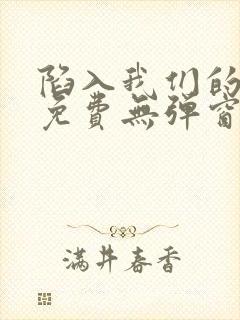 陷入我们的
免费無弹窗
满井春香